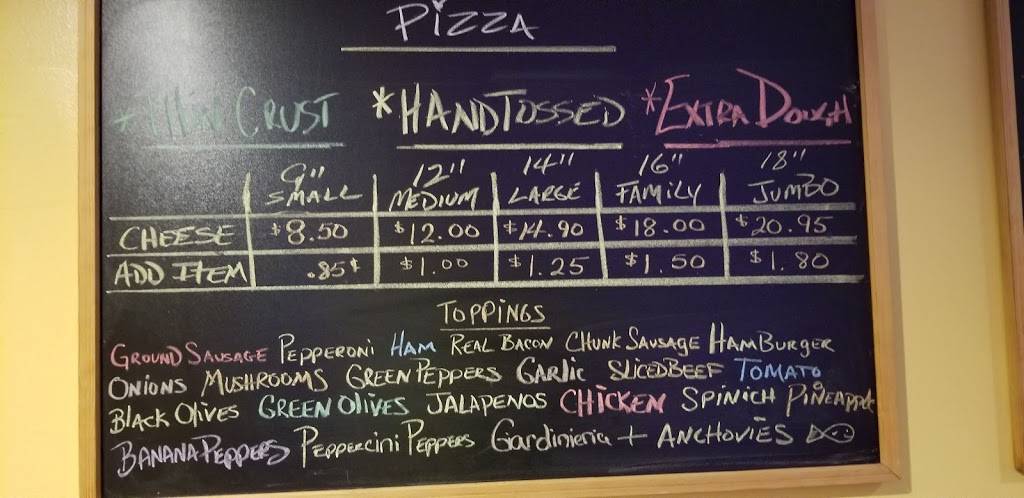 PIZZA
*THIN CRUST *HAND TOSSED *EXTRA DOUGH
9" 12" 14" 16" 18"
SMALL MEDIUM LARGE FAMILY JUMBO
CHEESE $8.50 $12.00 $14.90 $18.00 $20.95
ADD ITEM .85¢ $1.00 $1.25 $1.50 $1.80
TOPPINGS
GROUND SAUSAGE PEPPERONI HAM REAL BACON CHUNK SAUSAGE HAMBURGER
ONIONS MUSHROOMS GREEN PEPPERS GARLIC SLICED BEEF TOMATO
BLACK OLIVES GREEN OLIVES JALAPENOS CHICKEN SPINICH PINEAPPLE
BANANA PEPPERS PEPPERCINI PEPPERS Gardinieria + ANCHOVIES